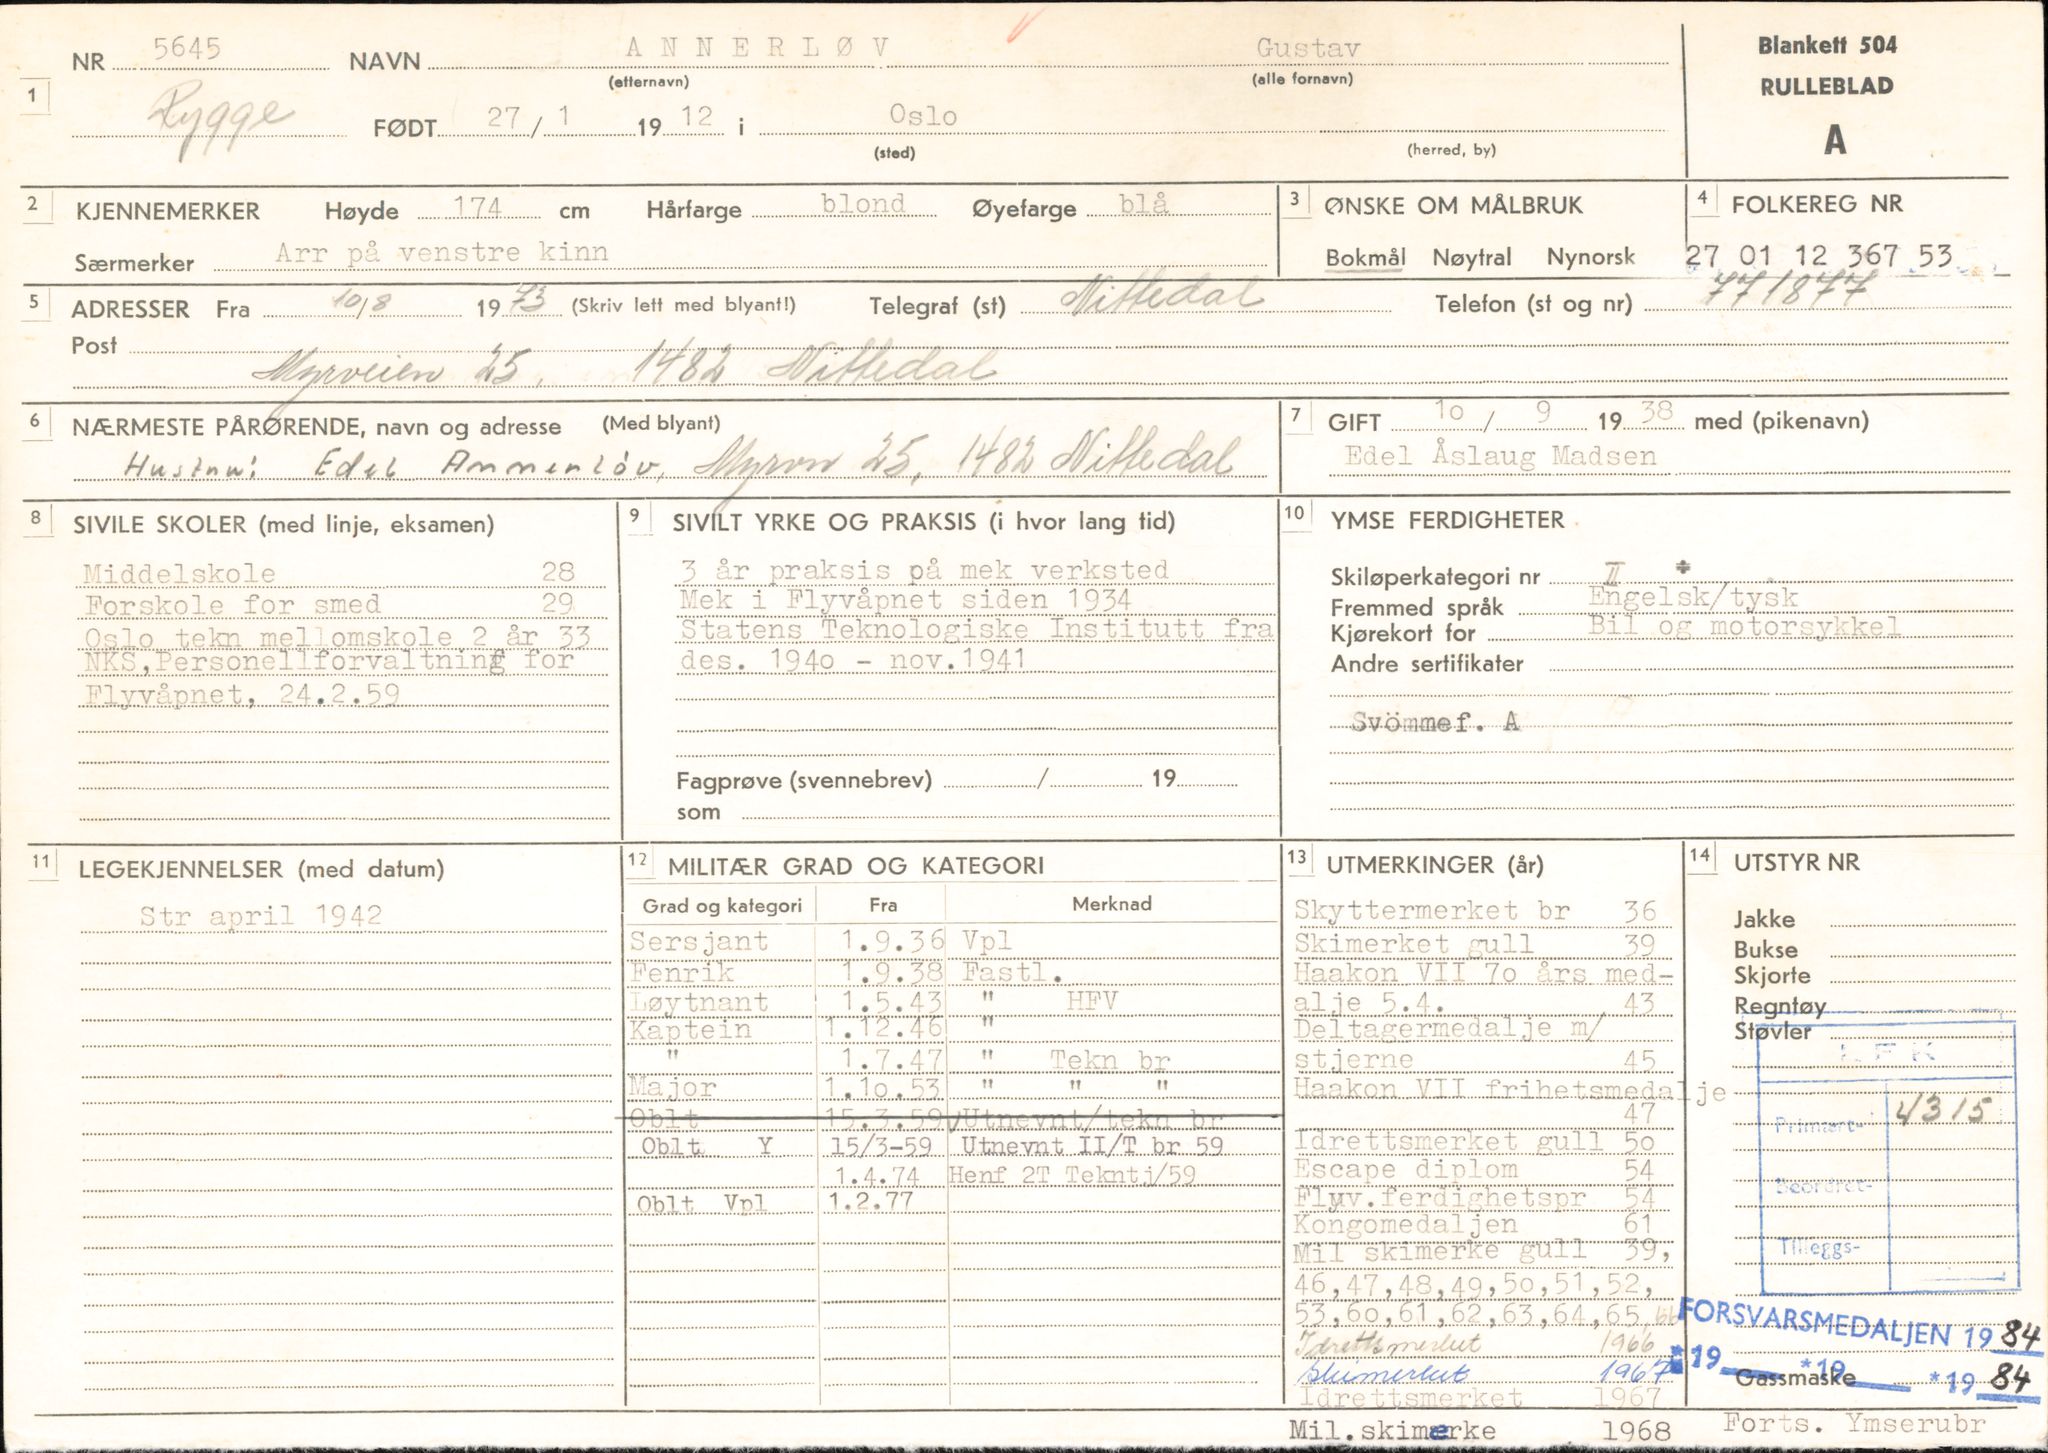 NR 5645 NAVN ANNERLØV Gustav
(etternavn) (alle fornavn)
Blankett 504
RULLEBLAD
A
1
Rygge FØDT 27 / 1 19 12 i Oslo
(sted) (herred, by)
2 KJENNEMERKER Høyde 174 cm Hårfarge blond Øyefarge blå
Særmerker Arr på venstre kinn
3 ØNSKE OM MÅLBRUK
Bokmål Nøytral Nynorsk
4 FOLKEREG NR
27 01 12 367 53
5 ADRESSER Fra 10/8 1973 (Skriv lett med blyant!) Telegraf (st) Nittedal Telefon (st og nr) 771877
Post
Myrveien 25, 1482 Nittedal
6 NÆRMESTE PÅRØRENDE, navn og adresse (Med blyant)
Hustru: Edel Annerløv, Myrvn 25, 1482 Nittedal
7 GIFT 10 / 9 19 38 med (pikenavn)
Edel Åslaug Madsen
8 SIVILE SKOLER (med linje, eksamen)
Middelskole 28
Forskole for smed 29
Oslo tekn mellomskole 2 år 33
NKS, Personellforvaltning for
Flyvåpnet, 24.2.59
9 SIVILT YRKE OG PRAKSIS (i hvor lang tid)
3 år praksis på mek verksted
Mek i Flyvåpnet siden 1934
Statens Teknologiske Institutt fra
des. 1940 - nov.1941
Fagprøve (svennebrev) / 19
som
10 YMSE FERDIGHETER
Skiløperkategori nr II +
Fremmed språk Engelsk/tysk
Kjørekort for Bil og motorsykkel
Andre sertifikater
Svömmef. A
11 LEGEKJENNELSER (med datum)
Str april 1942
12 MILITÆR GRAD OG KATEGORI
Grad og kategori Fra Merknad
Sersjant 1.9.36 Vpl
Fenrik 1.9.38 Fastl.
Løytnant 1.5.43 " HFV
Kaptein 1.12.46 "
" 1.7.47 " Tekn br
Major 1.10.53 " " "
Oblt 15.3.59 Utnevnt/tekn br
Oblt Y 15/3-59 Utnevnt II/T br 59
1.4.74 Henf 2T Tekntj/59
Oblt Vpl 1.2.77
13 UTMERKINGER (år)
Skyttermerket br 36
Skimerket gull 39
Haakon VII 70 års med-
alje 5.4. 43
Deltagermedalje m/
stjerne 45
Haakon VII frihetsmedalje
47
Idrettsmerket gull 50
Escape diplom 54
Flyv.ferdighetspr 54
Kongomedaljen 61
Mil skimerke gull 39,
46,47,48,49,50,51,52,
53,60,61,62,63,64,65,66
Idrettsmerket 1966
Skimerket 1967
Idrettsmerket 1967
Mil.skimerke 1968
14 UTSTYR NR
Jakke
Bukse
Skjorte
Regntøy
Støvler
LFK
Primært- 4315
Beordret-
Tilleggs-
FORSVARSMEDALJEN 19 84
*19 *19 *19 84
Gassmaske
Forts. Ymserubr